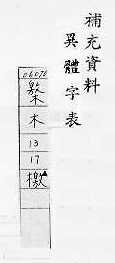 補充資料
異體字表
木
13
17
檄